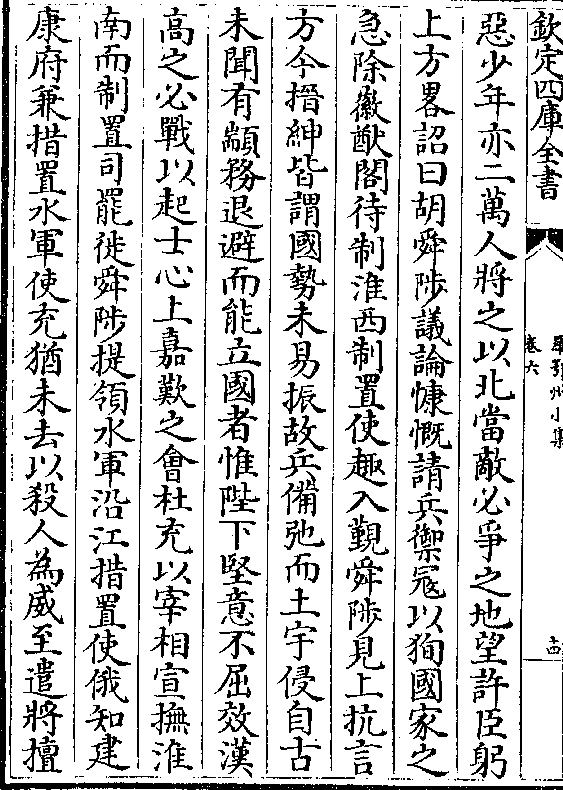 欽定四庫全書
羅鄂州小集
卷六
十四
惡少年亦二萬人將之以北當敵必爭之地望許臣躬
上方畧詔曰胡舜陟議論慷慨請兵禦冦以狥國家之
急除徽猷閣待制淮西制置使趣入覲舜陟見上抗言
方今搢紳皆謂國勢未易振故兵備弛而土宇侵自古
未聞有顓務退避而能立國者惟陛下堅意不屈效漢
高之必戰以起士心上嘉歎之會杜充以宰相宣撫淮
南而制置司罷徙舜陟提領水軍沿江措置使俄知建
康府兼措置水軍使充猶未去以殺人為威至遣將擅